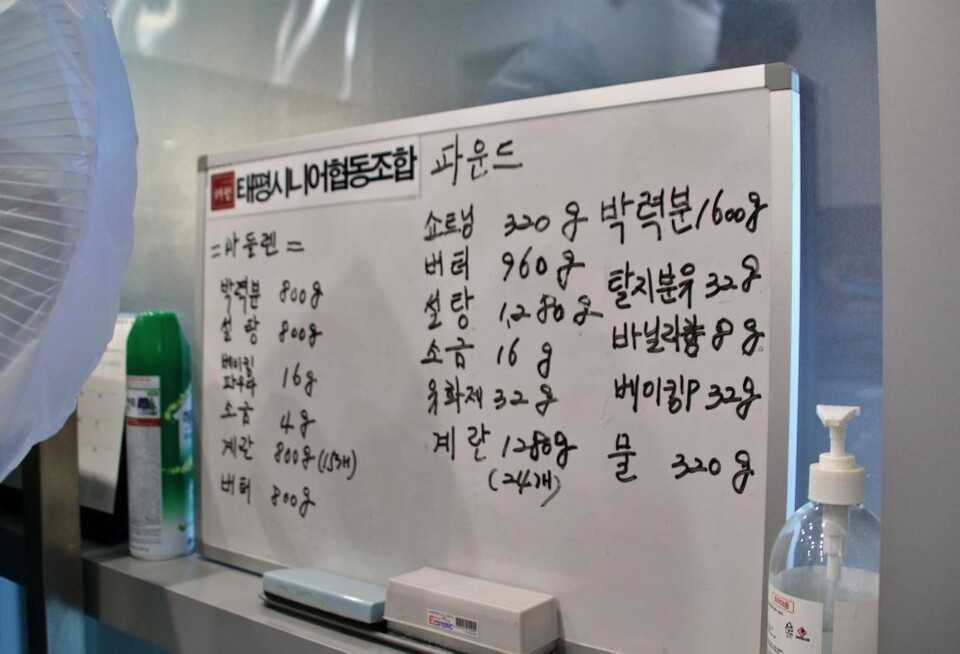 태평시니어협동조합
=마들렌=
박력분 800g
설탕 800g
베이킹
파우다 16g
소금 4g
계란 800g(15개)
버터 800g
파운드
쇼트닝 320g
버터 960g
설탕 1,280g
소금 16g
유화제 32g
계란 1280g
(24개)
박력분 1600g
탈지분유 32g
바닐라향 8g
베이킹P 32g
물 320g